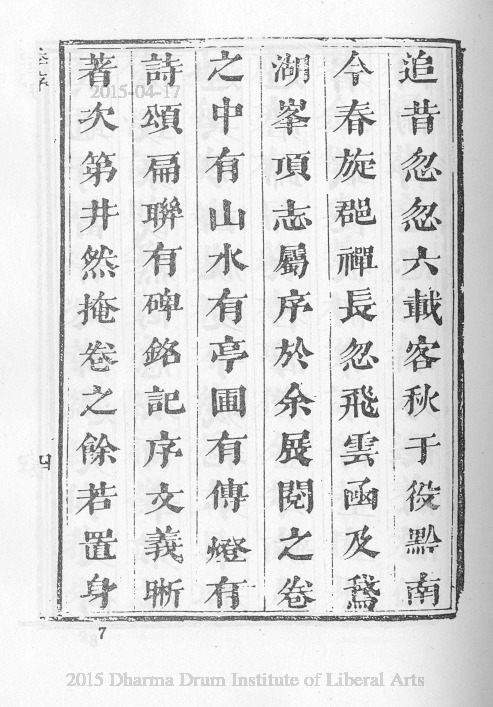 追昔忽忽六載客秋于役黔南
今春旋郡禪長忽飛雲函及鵞
湖峯頂志屬序於余展閱之卷
之中有山水有亭圃有傳燈有
詩頌扁聯有碑銘記序文義晰
著次第井然掩卷之餘若置身
四
7
2015-04-17
2015 Dharma Drum Institute of Liberal Arts